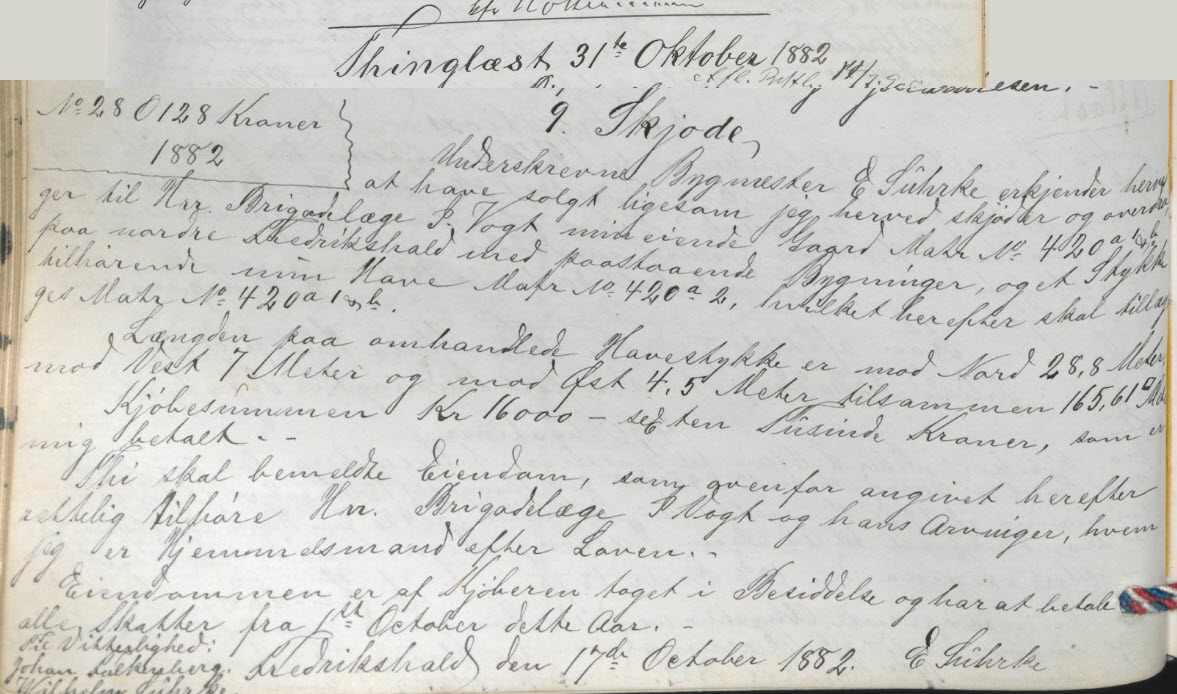 Thinglæst 31te Oktober 1882
No 28 0128 Kroner
1882
9 Skjøde,
Underskrevne Bygmester E Sührke erkjender herved
at have solgt ligesom jeg herved skjøder og overdra
ger til Hrr. Brigadelæge P. Vogt min eiende Gaard Matr No 420 a 1 & b
paa nordre Fredrikshald med paastaaende Bygninger, og et Stykke
tilhørende min Have Matr No 420 a 2, hvilket herefter skal tillæg
ges Matr No 420 a 1 & b.
Længden paa omhandlede Havestykke er mod Nord 28,8 Meter,
mod Vest 7 Meter og mod Øst 4,5 Meter tilsammen 165,61 □ Met
Kjøbesummen Kr 16000 – sexten Tusinde Kroner, som er
mig betalt. -
Thi skal bemeldte Eiendom, som ovenfor angivet herefter
rettelig tilhøre Hrr. Brigadelæge P Vogt og hans Arvinger, hvem
jeg er Hjemmelsmand efter Loven. -
Eiendommen er af Kjøberen taget i Besiddelse og har at betale
alle Skatter fra 1ste October dette Aar. -
Fredrikshald den 17de October 1882. E Sührke
Til Vitterlighed:
Johan Falkenberg.
Wilhelm Sührke